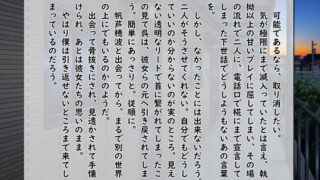 可能であるなら、取り消したい。
気が極限にまで滅入っていたとは言え、執
拗以上の甘いプレイに屈してしまい、その場
の流れで二人に、電話口で椛にまで宣言して
しまった下世話でどうしようもないあの言葉
を。
しかし、なかったことには出来ないだろう。
二人がそうさせてくれない。自分でもどうし
ていいのか分からないのが実のところ。見え
ない透明なリードで首に繋がれてしまったこ
の見て呉は、彼女らの元へ引き戻されてしま
う。簡単にあっさりと、従順に。
帆芦穂波と出会ってから、まるで別の世界
の上にでもいるのかのようだ。
出会って骨抜きにされ、見透かされて手懐
けられ、あとは彼女たちの思いのまま。
やはり僕は引き返せないところまで来てし
まっているのだろう。